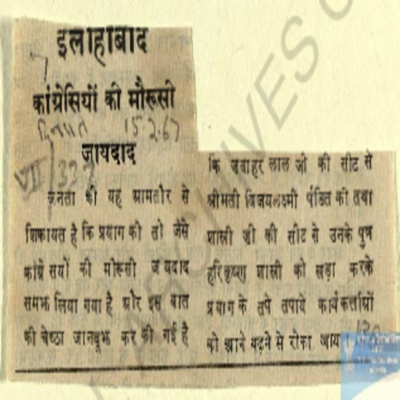 इलाहाबाद
कांग्रेसियों की मौरूसी
15.2.67
जायदाद
VII/337
जनता की यह आमतौर से
शिकायत है कि प्रयाग को तो जैसे
कांग्रेसियों की मौरूसी जयदाद
समझ लिया गया है और इस बात
की चेष्ठा जानबूझ कर की गई है
कि जवाहर लाल जी की सीट से
श्रीमती विजयलक्ष्मी पंडित की तथा
शास्त्री जी की सीट से उनके पुत्र
हरिकृष्ण शास्त्री को खड़ा करके
प्रयाग के तपे तपाये कार्यकर्त्ताओं
को आगे बढ़ने से रोका जाय
ARCHIVES